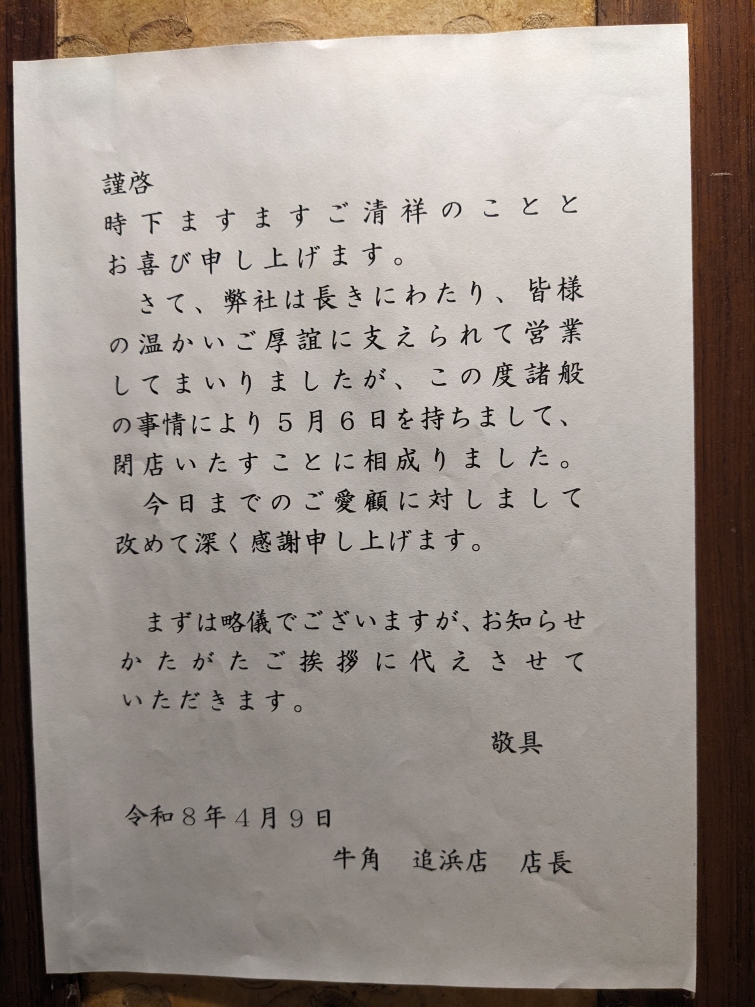 謹啓
時下ますますご清祥のことと
お喜び申し上げます。
さて、弊社は長きにわたり、皆様
の温かいご厚誼に支えられて営業
してまいりましたが、この度諸般
の事情により５月６日を持ちまして、
閉店いたすことに相成りました。
今日までのご愛顧に対しまして
改めて深く感謝申し上げます。
まずは略儀でございますが、お知らせ
かたがたご挨拶に代えさせて
いただきます。
敬具
令和８年４月９日
牛角　追浜店　店長